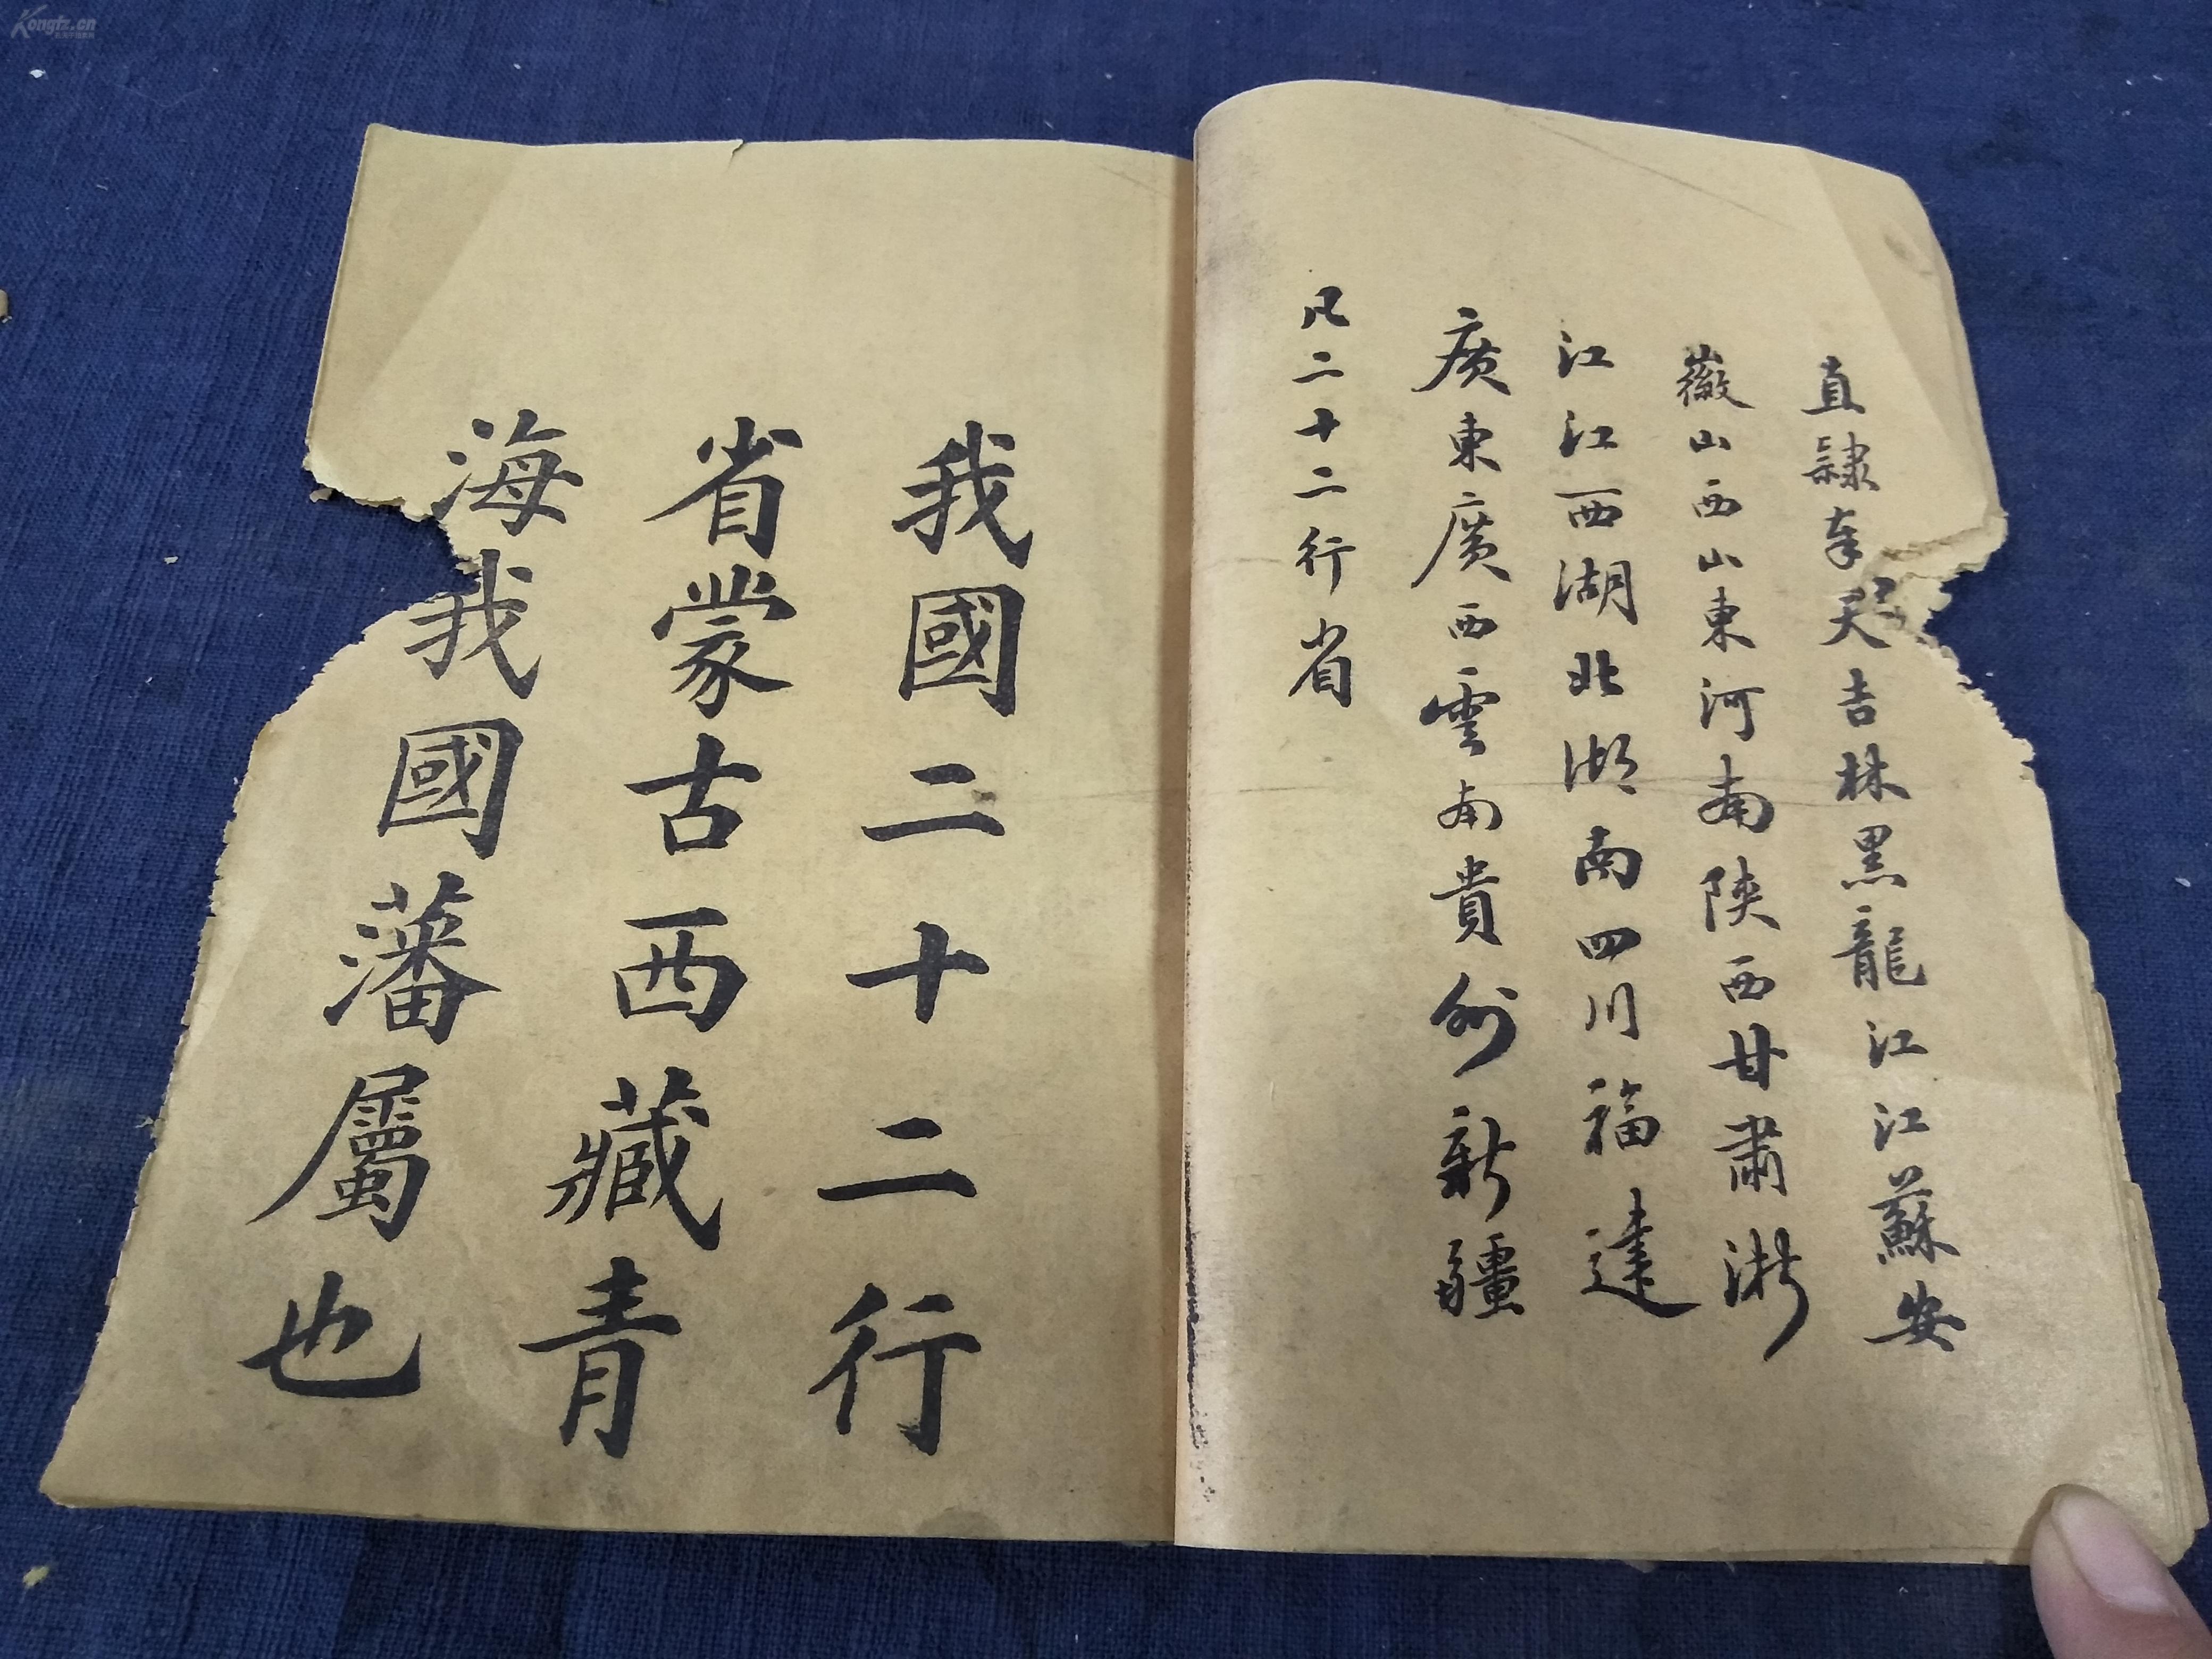 直隸奉天吉林黑龍江江蘇安
徽山西山東河南陝西甘肅浙
江江西湖北湖南四川福建
廣東廣西雲南貴州新疆
凡二十二行省
我國二十二行
省蒙古西藏青
海我國藩屬也
Kongfz.cn